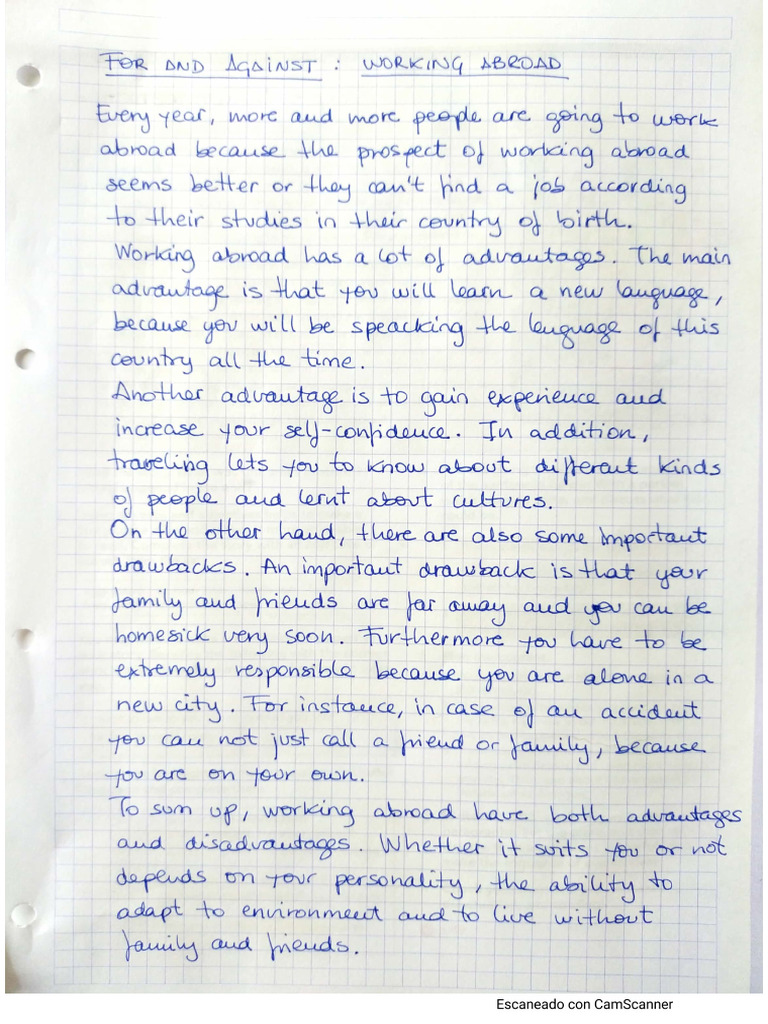 FOR AND AGAINST : WORKING ABROAD
Every year, more and more people are going to work
abroad because the prospect of working abroad
seems better or they can't find a job according
to their studies in their country of birth.
Working abroad has a lot of advantages. The main
advantage is that you will learn a new language,
because you will be speacking the lenguage of this
country all the time.
Another advantage is to gain experience and
increase your self-confidence. In addition,
traveling lets you to know about different kinds
of people and lernt about cultures.
On the other hand, there are also some important
drawbacks. An important drawback is that your
family and friends are far away and you can be
homesick very soon. Furthermore you have to be
extremely responsible because you are alone in a
new city. For instance, in case of an accident
you can not just call a friend or family, because
you are on your own.
To sum up, working abroad have both advantages
and disadvantages. Whether it suits you or not
depends on your personality, the ability to
adapt to environment and to live without
family and friends.
Escaneado con CamScanner